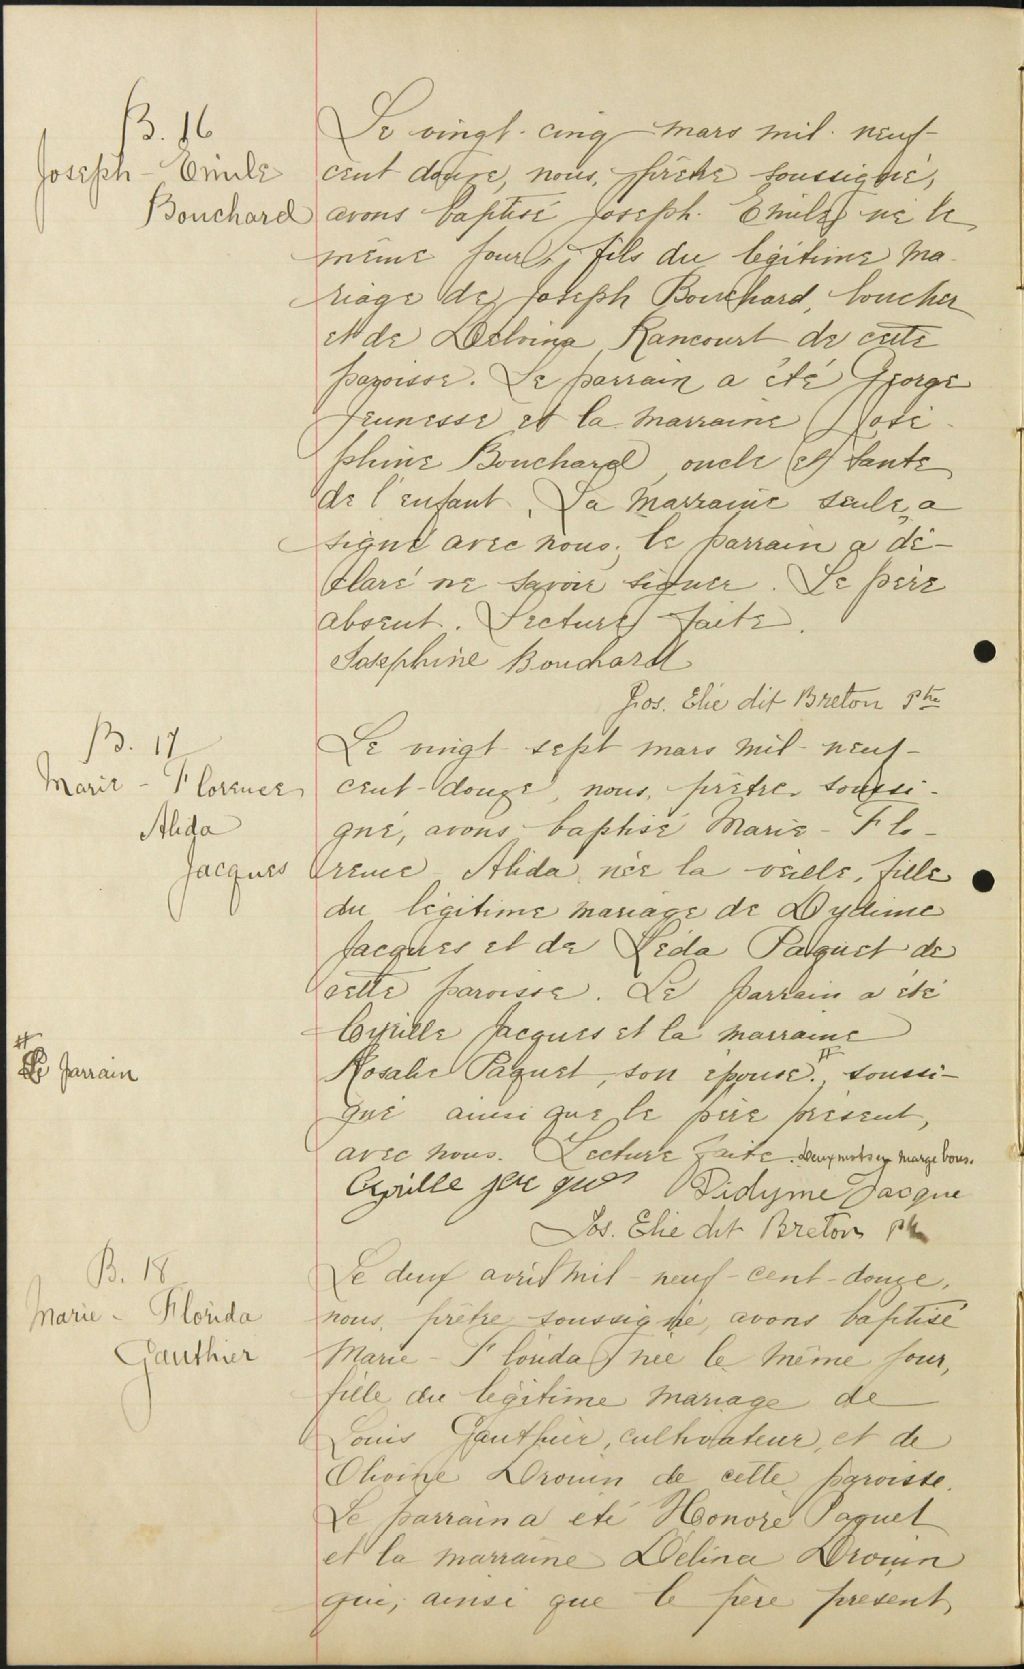 B. 16
Joseph - Emile
Bouchard
Le vingt-cinq mars mil-neuf-
cent douze, nous, prêtre soussigné,
avons baptisé Joseph-Emile, né le
même jour, fils du légitime ma-
riage de Joseph Bouchard, boucher
et de Delvina Rancourt de cette
paroisse. Le parrain a été George
Jeunesse et la marraine José-
phine Bouchard, oncle et tante
de l'enfant. La marraine seule a
signé avec nous; le parrain a dé-
claré ne savoir signer. Le père
absent. Lecture faite.
Josephine Bouchard
Jos. Elie dit Breton Ptre
B. 17
Marie - Florence
Alida
Jacques
Le vingt-sept mars mil-neuf-
cent-douze, nous, prêtre soussi-
gné, avons baptisé Marie-Flo-
rence Alida, née la veille, fille
du légitime mariage de Dydime
Jacques et de Léda Paquet de
cette paroisse. Le parrain a été
Cyrille Jacques et la marraine
Rosalie Paquet, son épouse. # soussi-
gné ainsi que le père présent,
avec nous. Lecture faite. Deux mots en marge bons.
# Le parrain
Cyrille Didyme Jacque
Jos. Elie dit Breton Ptr
B. 18
Marie - Florida
Gauthier
Le deux avril mil-neuf-cent-douze,
nous, prêtre soussigné, avons baptisé
Marie-Florida, née le même jour,
fille du légitime mariage de
Louis Gauthier, cultivateur, et de
Olivine Drouin de cette paroisse.
Le parrain a été Honoré Paquet
et la marraine Délina Drouin
qui, ainsi que le père présent,